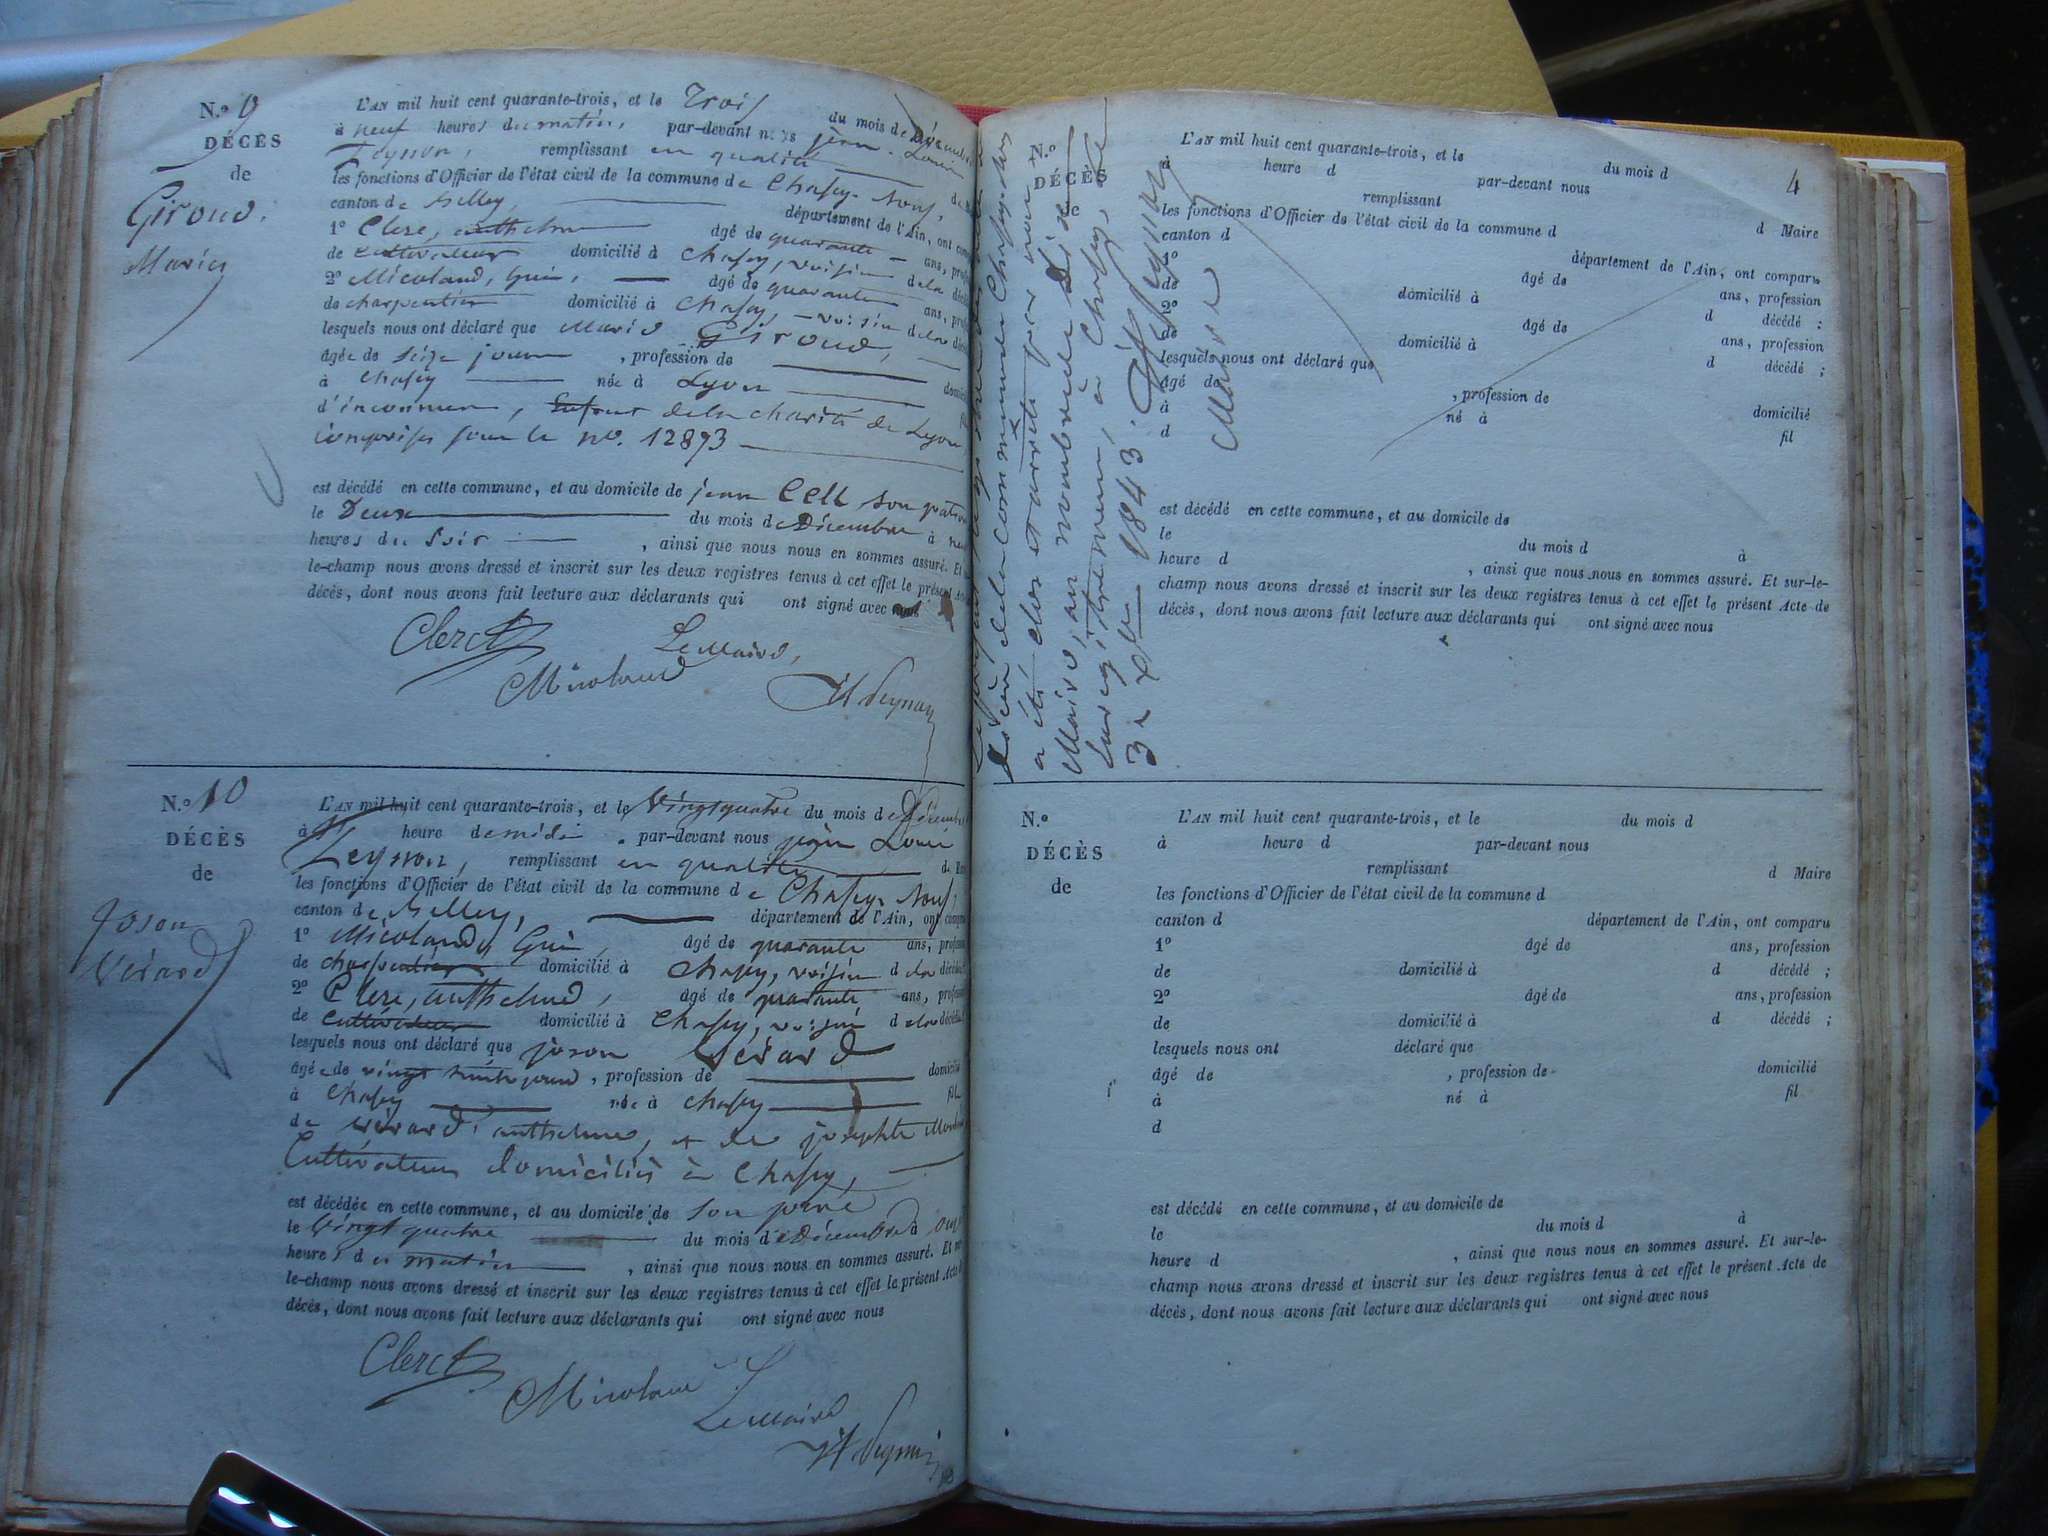 N.o 9
DÉCÈS
de
Giroud,
Marie
L'AN mil huit cent quarante-trois, et le Trois du mois de Décembre
à neuf heures du matin, par-devant nous jean-Louis
Teysson, remplissant en qualité de
les fonctions d'Officier de l'état civil de la commune de Chasey-
canton de Belley, département de l'Ain, ont
1o Clerc, anthelme âgé de quarante ans,
de cultivateur domicilié à Chasey, voisin de la
2o Micoland, âgé de quarante ans,
de charpentier domicilié à Chasey, voisin de la
lesquels nous ont déclaré que Marie Giroud,
âgée de seize jours, profession de
à Chasey née à Lyon
d'inconnus, Enfant de la charité de Lyon
sous le no. 12893
est décédé en cette commune, et au domicile de jean son
le Deux du mois de Décembre à
heures du soir, ainsi que nous nous en sommes assuré. Et
le-champ nous avons dressé et inscrit sur les deux registres tenus à cet effet le présent Acte
décès, dont nous avons fait lecture aux déclarants qui ont signé avec nous
Clerc
Le Maire,
Micoland
N.o 10
DÉCÈS
de
Joson
Vérard
L'AN mil huit cent quarante-trois, et le Vingt quatre du mois de Décembre
à heure de midi par-devant nous jean Louis
Teysson, remplissant en qualité de
les fonctions d'Officier de l'état civil de la commune de Chasey-
canton de Belley, département de l'Ain, ont
1o Micoland, âgé de quarante ans,
de charpentier domicilié à Chasey, voisin de la
2o Clerc, anthelme, âgé de quarante ans,
de cultivateur domicilié à Chasey, voisin de la
lesquels nous ont déclaré que joson Vérard
âgée de vingt jours, profession de domicilié
à Chasey née à Chasey fil
de Vérard anthelme, et de josephte
Cultivateurs domiciliés à Chasey,
est décédée en cette commune, et au domicile de son père
le Vingt quatre du mois de Décembre à
heures du matin, ainsi que nous nous en sommes assuré. Et
le-champ nous avons dressé et inscrit sur les deux registres tenus à cet effet le présent Acte
décès, dont nous avons fait lecture aux déclarants qui ont signé avec nous
Clerc
Micoland
Le Maire
4
N.o
DÉCÈS
de
décès de la commune de Chasey
a été clos et arrêté par nous
Maire, au nombre de Dix
enregistrement, à Chasey, le
3 1843.
Maire
L'AN mil huit cent quarante-trois, et le du mois d
à heure d par-devant nous
remplissant d Maire
les fonctions d'Officier de l'état civil de la commune d
canton d département de l'Ain, ont comparu
1o âgé de ans, profession
de domicilié à d décédé ;
2o âgé de ans, profession
de domicilié à d décédé ;
lesquels nous ont déclaré que
âgé de , profession de domicilié
à né à fil
d
est décédé en cette commune, et au domicile de
le du mois d à
heure d , ainsi que nous nous en sommes assuré. Et sur-le-
champ nous avons dressé et inscrit sur les deux registres tenus à cet effet le présent Acte de
décès, dont nous avons fait lecture aux déclarants qui ont signé avec nous
N.o
DÉCÈS
de
L'AN mil huit cent quarante-trois, et le du mois d
à heure d par-devant nous
remplissant d Maire
les fonctions d'Officier de l'état civil de la commune d
canton d département de l'Ain, ont comparu
1o âgé de ans, profession
de domicilié à d décédé ;
2o âgé de ans, profession
de domicilié à d décédé ;
lesquels nous ont déclaré que
âgé de , profession de domicilié
à né à fil
d
est décédé en cette commune, et au domicile de
le du mois d à
heure d , ainsi que nous nous en sommes assuré. Et sur-le-
champ nous avons dressé et inscrit sur les deux registres tenus à cet effet le présent Acte de
décès, dont nous avons fait lecture aux déclarants qui ont signé avec nous